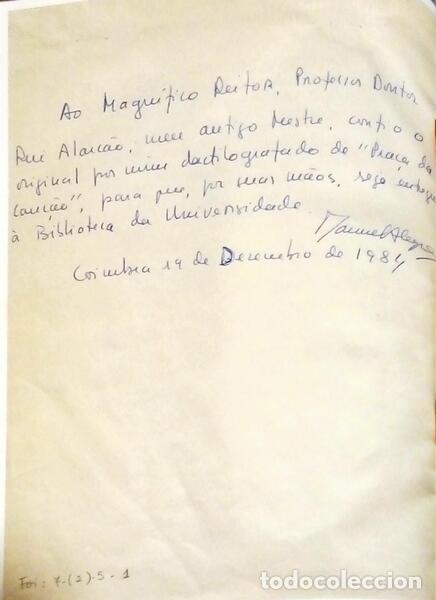 Ao Magnífico Reitor, Professor Doutor
Rui Alarcão, meu antigo Mestre, confio o
original por mim dactilografado de "Praça da
Canção", para que, por suas mãos, seja entregue
à Biblioteca da Universidade.
Manuel Alegre
Coimbra 19 de Dezembro de 1984
Foi: 7-(2)-5-1
todocoleccion